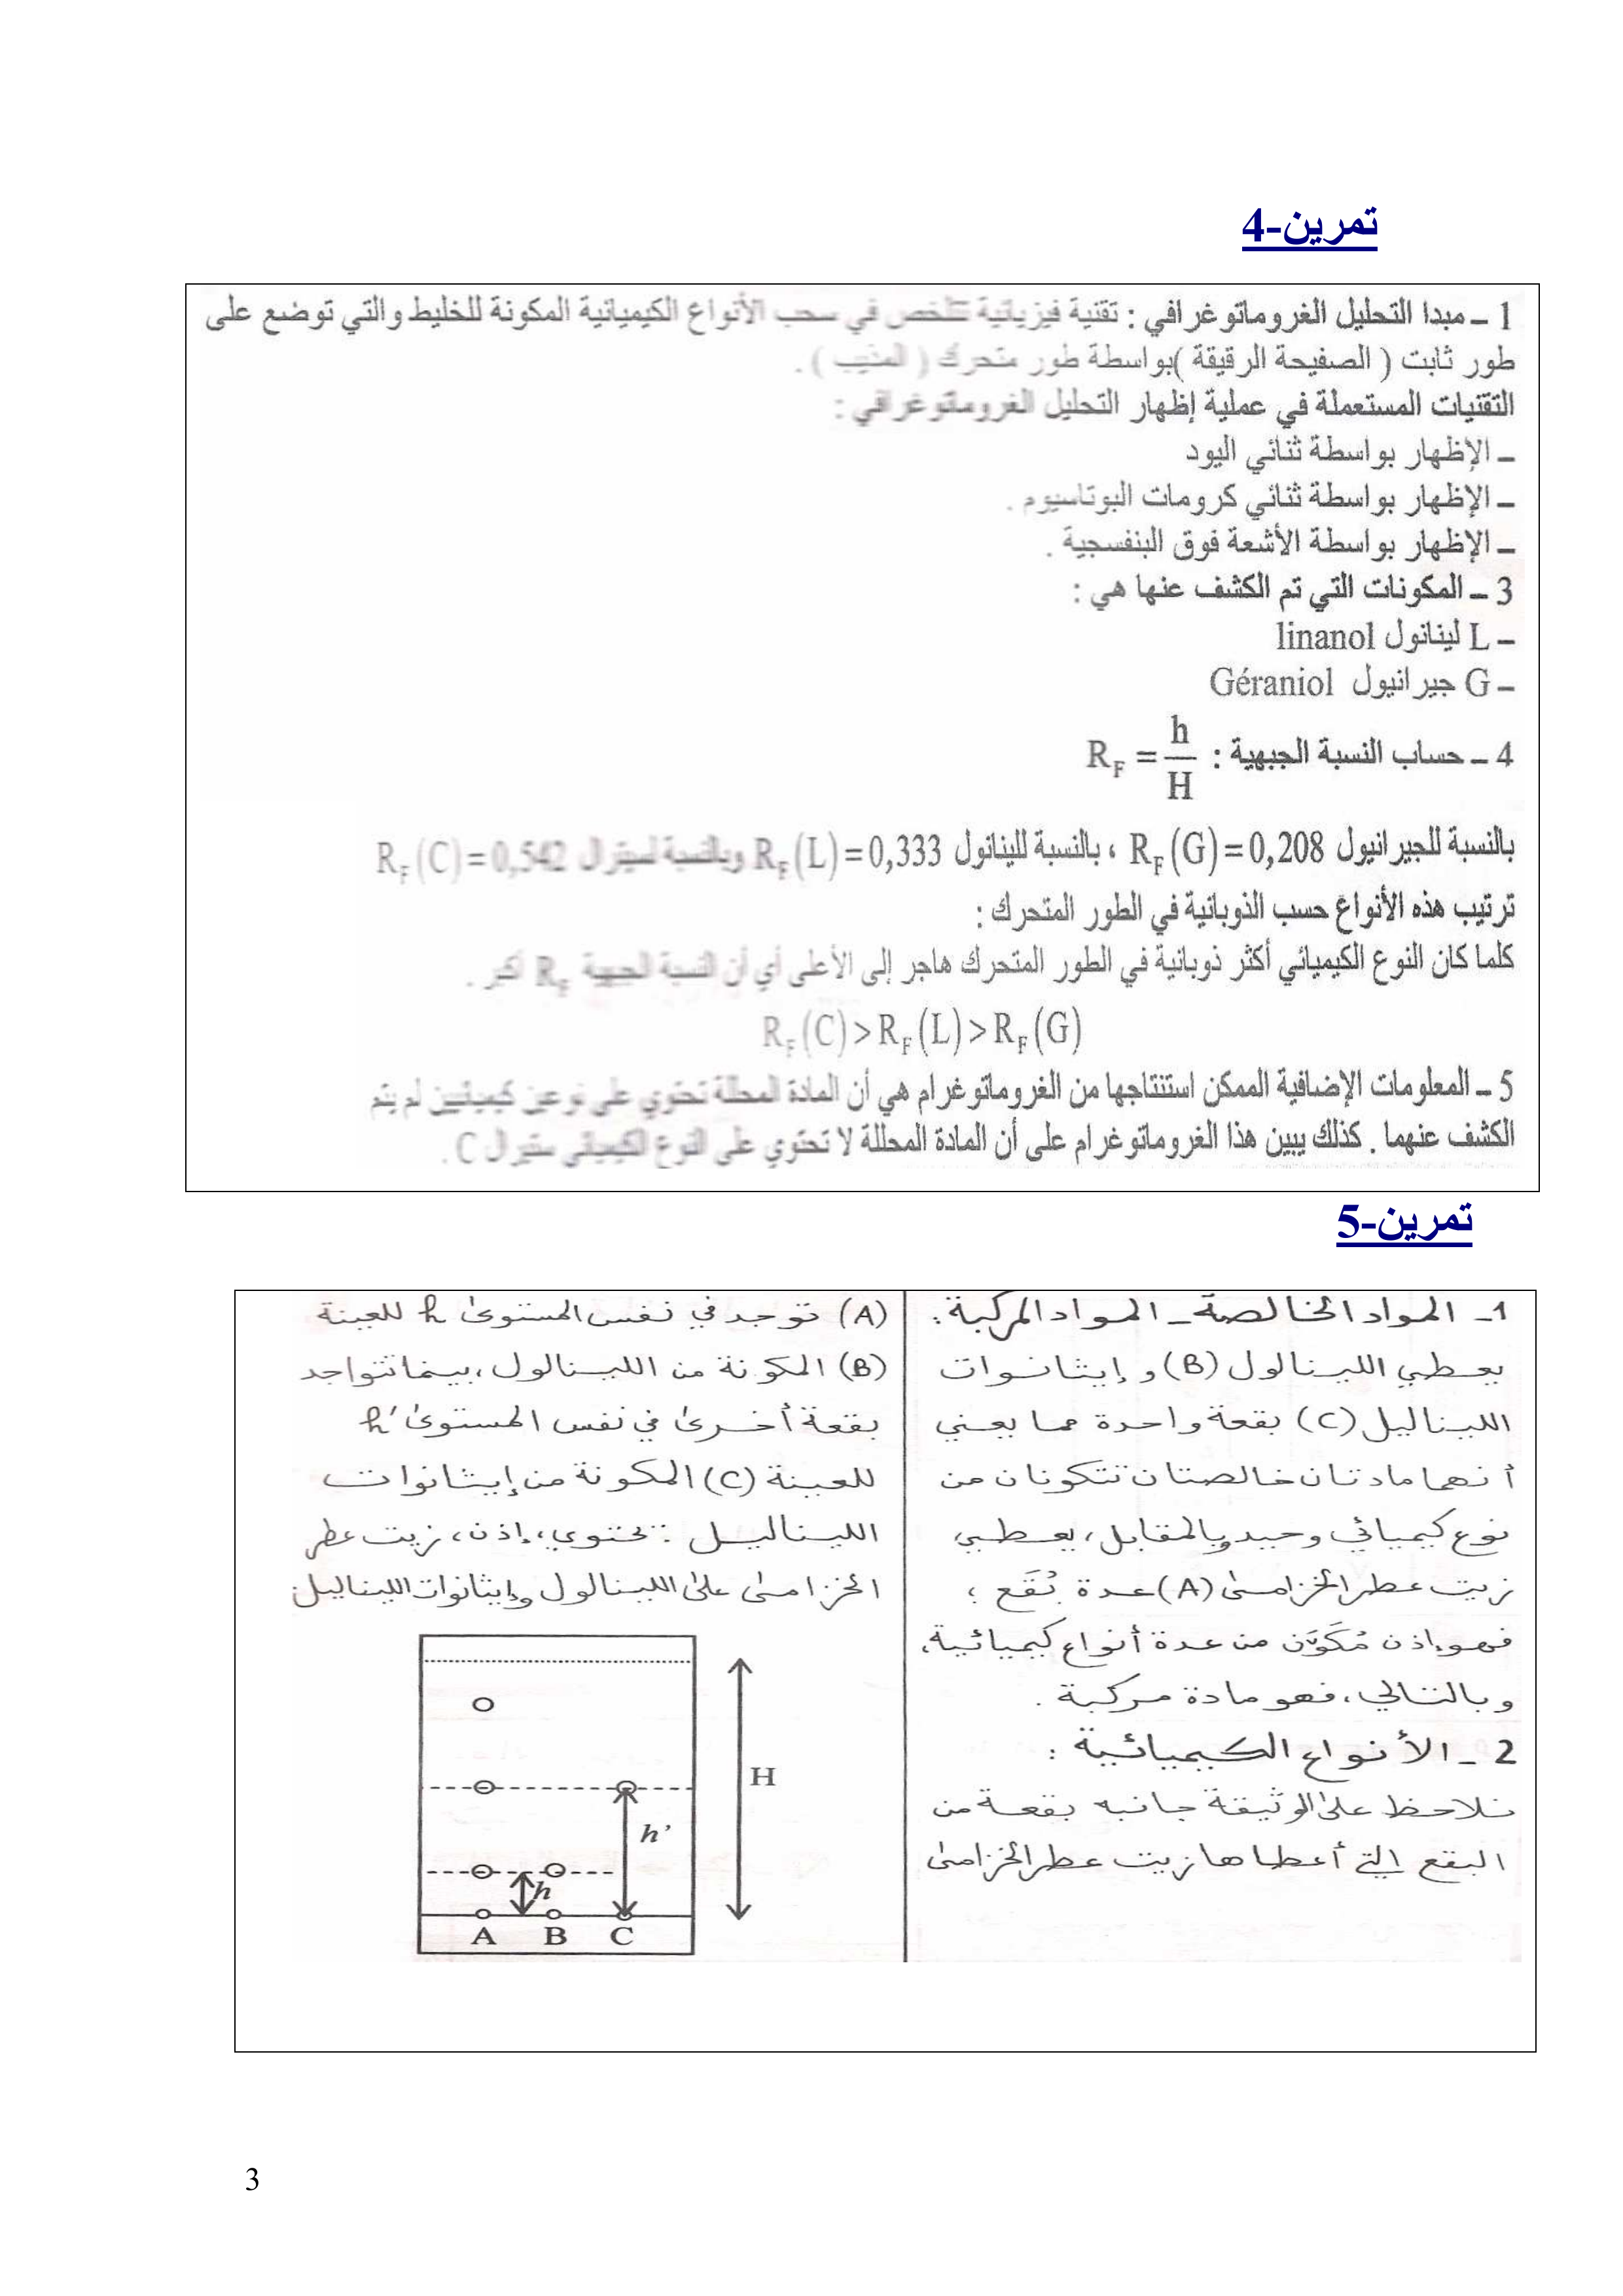 تمرين-4
1 ــ مبدا التحليل الغروماتوغرافي : تقنية فيزيائية تتلخص في سحب الأنواع الكيميائية المكونة للخليط والتي توضع على
طور ثابت ( الصفيحة الرقيقة )بواسطة طور متحرك ( المذيب ) .
التقنيات المستعملة في عملية إظهار التحليل الغروماتوغرافي :
ــ الإظهار بواسطة ثنائي اليود
ــ الإظهار بواسطة ثنائي كرومات البوتاسيوم .
ــ الإظهار بواسطة الأشعة فوق البنفسجية .
3 ــ المكونات التي تم الكشف عنها هي :
ــ L لينانول linanol
ــ G جيرانيول Géraniol
4 ــ حساب النسبة الجبهية : R_F = h/H
بالنسبة للجيرانيول R_F(G)=0,208 ، بالنسبة للينانول R_F(L)=0,333 وبالنسبة لسترال R_F(C)=0,542
ترتيب هذه الأنواع حسب الذوبانية في الطور المتحرك :
كلما كان النوع الكيميائي أكثر ذوبانية في الطور المتحرك هاجر إلى الأعلى أي أن النسبة الجبهية R_F أكبر .
R_F(C)>R_F(L)>R_F(G)
5 ــ المعلومات الإضافية الممكن استنتاجها من الغروماتوغرام هي أن المادة المحللة تحتوي على نوعين كيميائيين لم يتم
الكشف عنهما . كذلك يبين هذا الغروماتوغرام على أن المادة المحللة لا تحتوي على النوع الكيميائي سترال C .
تمرين-5
1- المواد الخالصة - المواد المركبة :
يعطي اللينالول (B) و إيثانوات
الليناليل (C) بقعة واحدة مما يعني
أنهما مادتان خالصتان تتكونان من
نوع كيميائي وحيد وبالمقابل، يعطي
زيت عطر الخزامى (A) عدة بُقَع ؛
فهو إذن مُكَوَّن من عدة أنواع كيميائية،
وبالتالي، فهو مادة مركبة .
2 - الأنواع الكيميائية :
نلاحظ على الوثيقة جانبه بقعة من
البقع التي أعطاها زيت عطر الخزامى
(A) توجد في نفس المستوى h للعينة
(B) المكونة من اللينالول، بينما تتواجد
بقعة أخرى في نفس المستوى h'
للعينة (C) المكونة من إيثانوات
الليناليل : تحتوي، إذن، زيت عطر
الخزامى على اللينالول وإيثانوات الليناليل.
H
h'
h
A B C
3